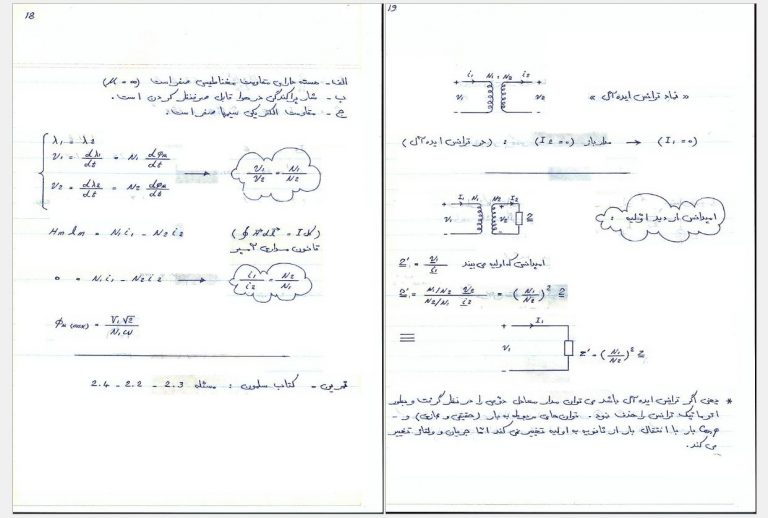 18
الف - هسته دارای مقاومت مغناطیسی صفر است (μ = ∞)
ب - شار پراکندگی در هوا قابل صرفنظر کردن است.
ج - مقاومت الکتریکی سیمها صفر است.
λ1 = λ2
v1 = dλ1/dt = N1 dφm/dt → v1/v2 = N1/N2
v2 = dλ2/dt = N2 dφm/dt
Hm lm = N1 i1 - N2 i2 (∮ H dl = I)
قانون مداری آمپر
0 = N1 i1 - N2 i2 → i1/i2 = N2/N1
φm (max) = V1 √2 / N1 ω
تمرین - کتاب سلمون : مسئله 2.3 - 2.2 - 2.4
19
i1 N1 : N2 i2
+ + 
v1 v2
- -
« نماد ترانس ایده آل »
(در ترانس ایده آل) : مدار باز (I2 = 0) → (I1 = 0)
I1 N1 N2 I2
+ +
v1 v2 Z
- -
امپدانس از دید اولیه :
Z' = v1/i1 امپدانسی که اولیه می بیند
Z' = N1/N2 v2 / N2/N1 i2 = (N1/N2)² Z
≡
+ I1
v1 Z' = (N1/N2)² Z
-
* یعنی اگر ترانس ایده آل باشد می توان مدار معادل جزئی را در نظر گرفت و بطور
اتوماتیک ترانس را حذف نمود. توان های مربوط به بار (حقیقی و مجازی) و -
Cosφ بار با انتقال بار از ثانویه به اولیه تغییر نمی کند اما جریان و ولتاژ تغییر
می کند.